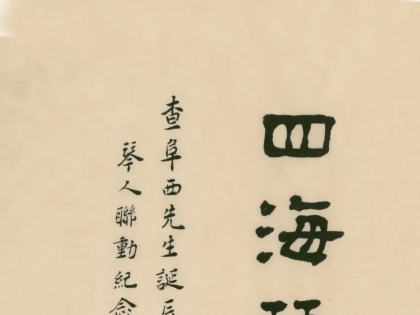 四海
查阜西先生誕辰
琴人聯動紀念